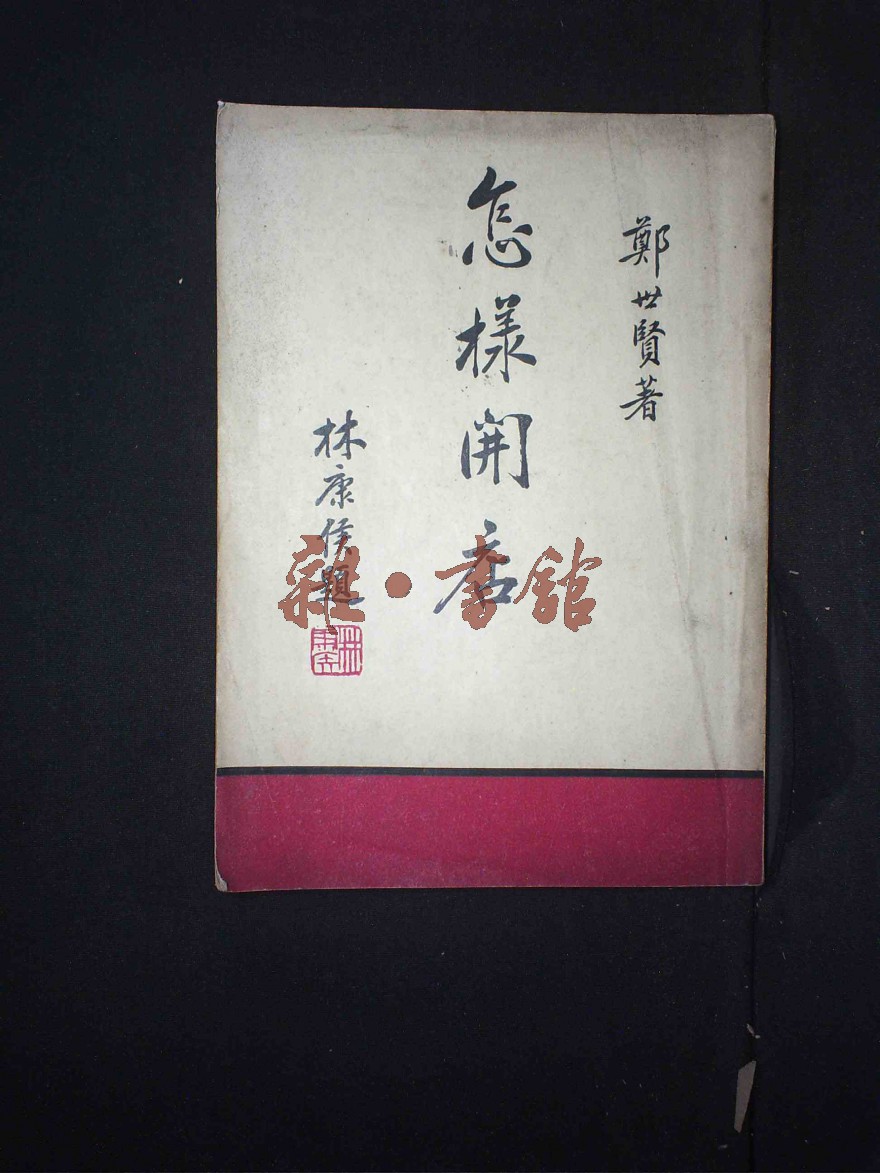 鄭世賢著
怎樣開店
林康侯題
雜·書館